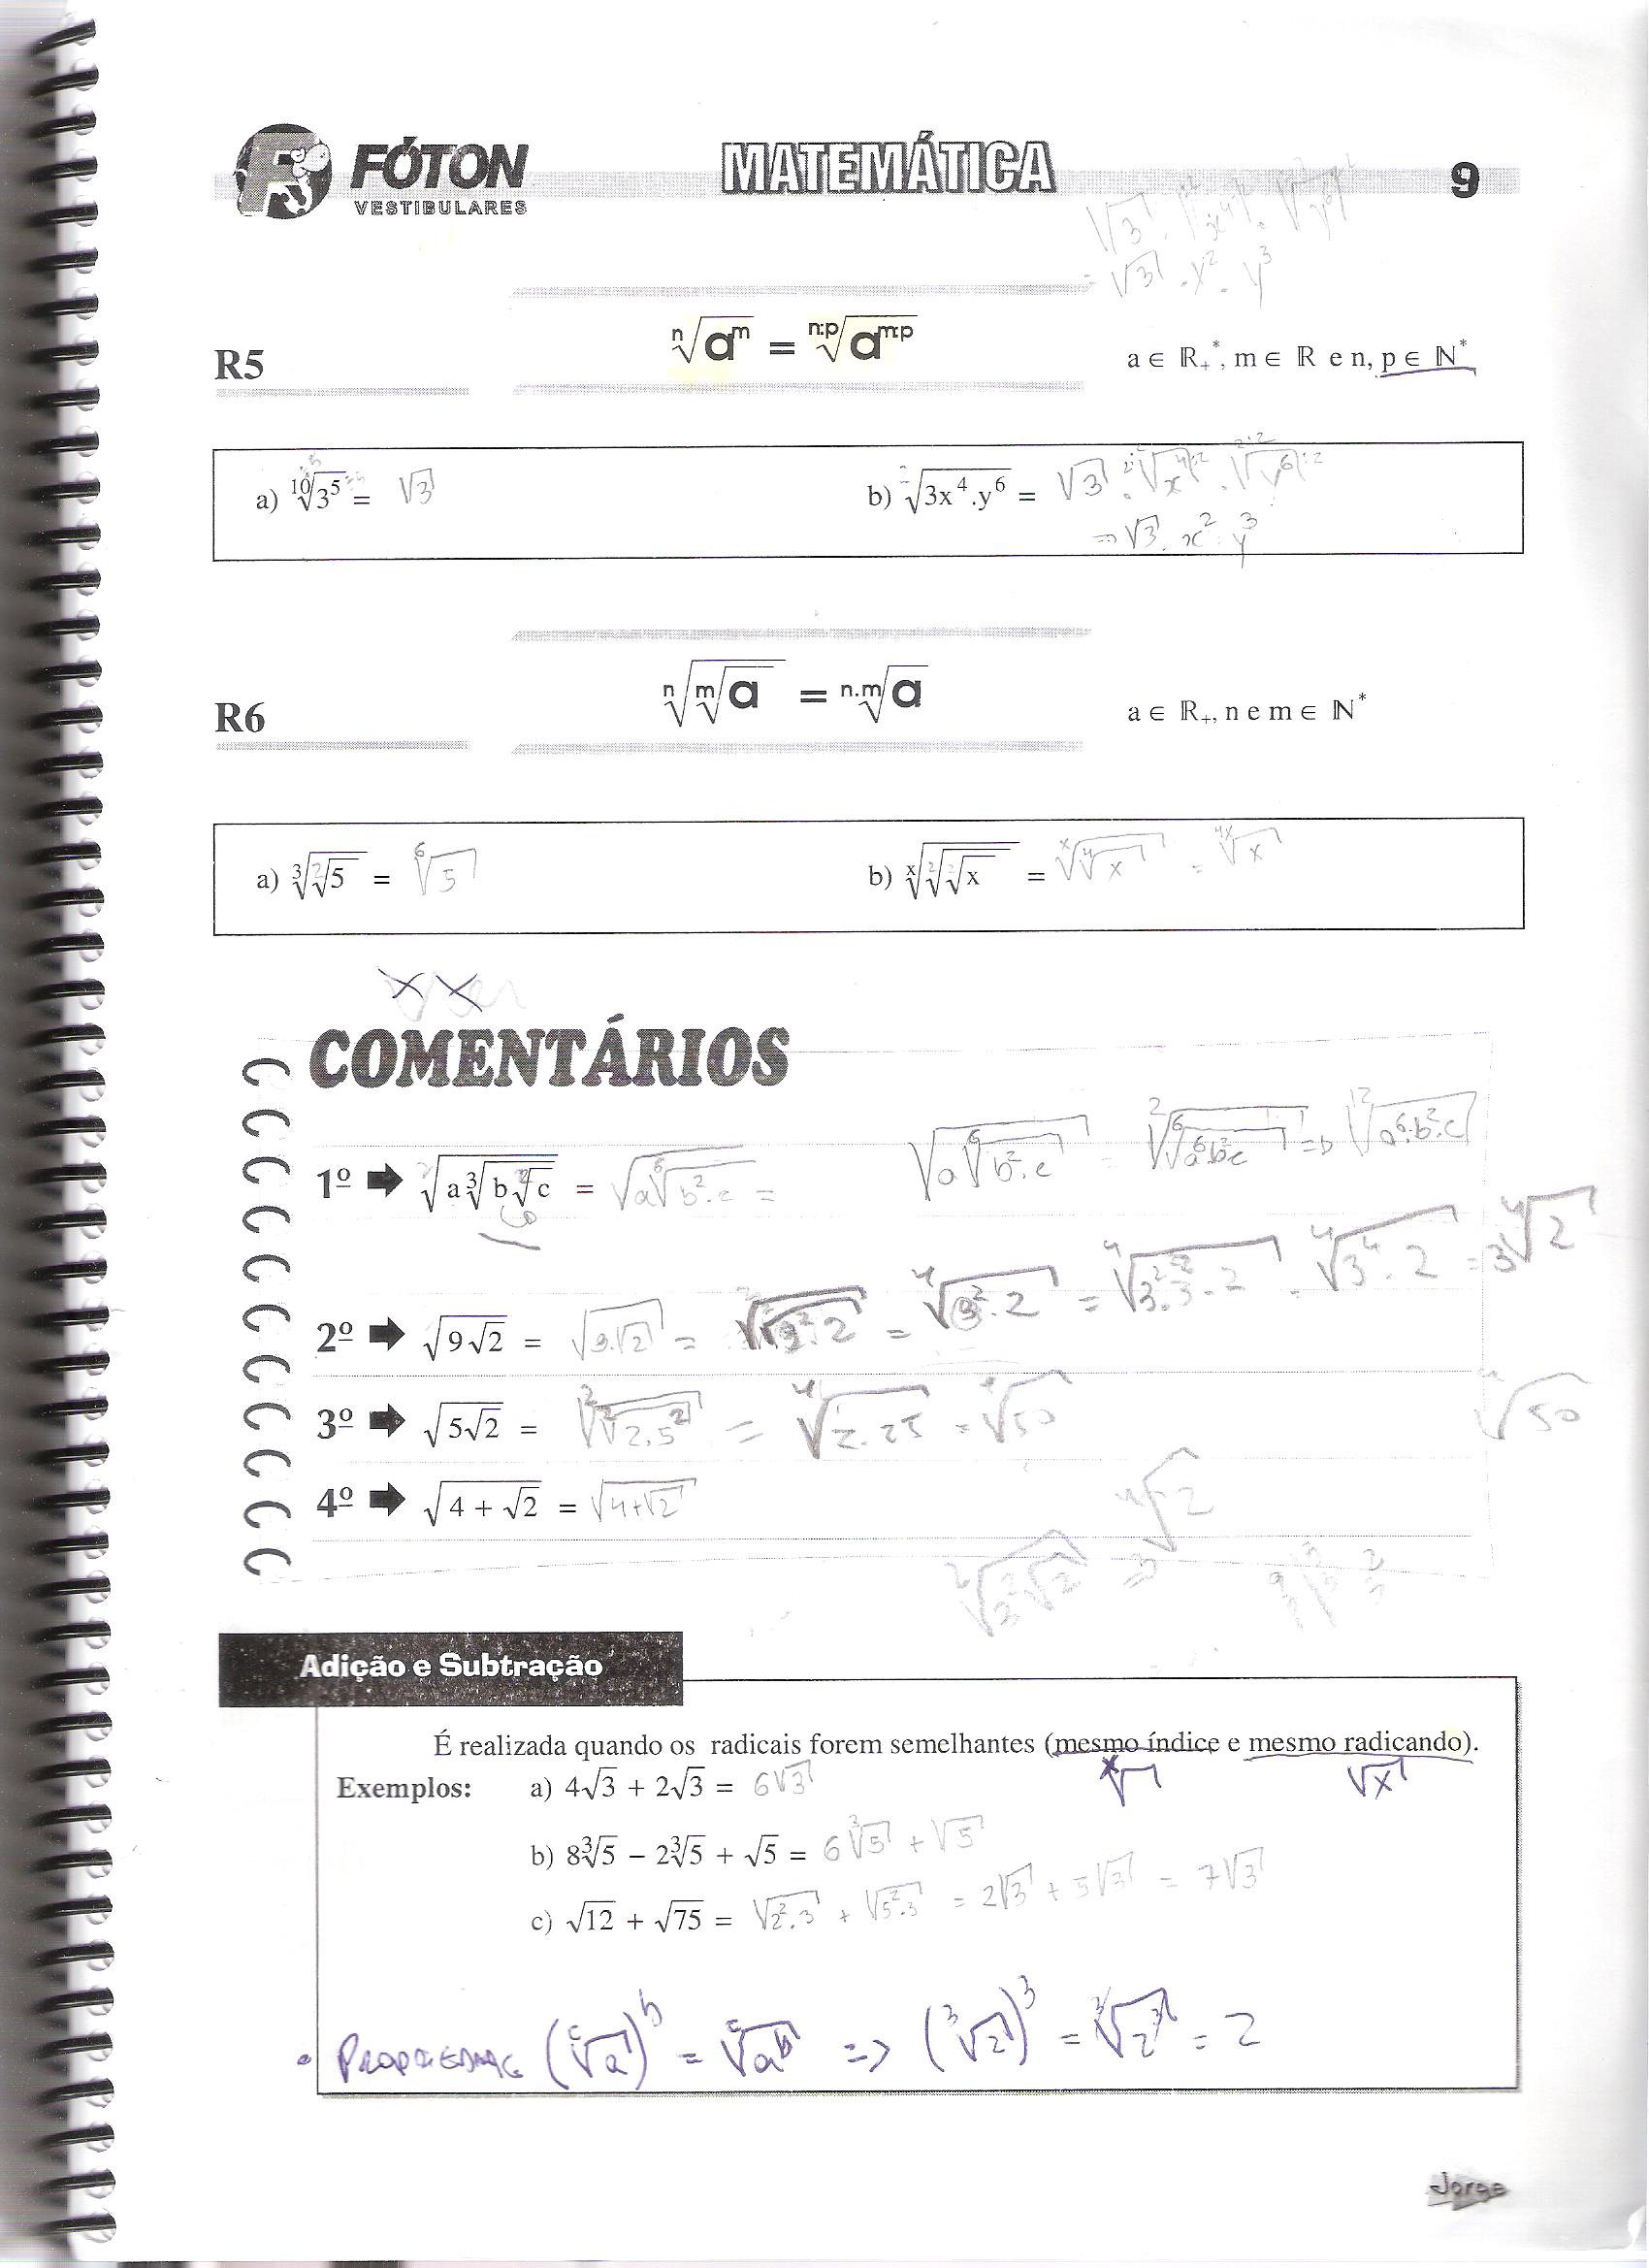 FÓTON
VESTIBULARES
MATEMÁTICA
9
√3 ·
= √3 · y² · y³
R5
ⁿ√aᵐ = ⁿ:ᵖ√aᵐ:ᵖ
a ∈ ℝ₊*, m ∈ ℝ e n, p ∈ ℕ*
a) ¹⁰√3⁵ = √3
b) √3x⁴.y⁶ = √3 · ²:²√x⁴:² · ²:²√y⁶:²
= √3 · x² · y³
R6
ⁿ√ᵐ√a = ⁿ·ᵐ√a
a ∈ ℝ₊, n e m ∈ ℕ*
a) ³√²√5 = ⁶√5
b) ˣ√²√√x = ˣ√⁴√x = ⁴ˣ√x
COMENTÁRIOS
1º ➡ √(a ³√(b √c)) = √(a ⁶√(b².c)) = √(a ⁶√(b².c)) = ²√(⁶√(a⁶b²c)) = ¹²√(a⁶.b².c)
2º ➡ √(9√2) = √(9.√2) = √(√(9².2)) = ⁴√(9².2) = ⁴√(3².3².2) = ⁴√(3⁴.2) = 3⁴√2
3º ➡ √(5√2) = ²√(²√(2.5²)) = ⁴√(2.25) = ⁴√50 ⁴√50
4º ➡ √(4 + √2) = √(4+√2)
Adição e Subtração
É realizada quando os radicais forem semelhantes (mesmo índice e mesmo radicando).
ˣ√ √x
Exemplos: a) 4√3 + 2√3 = 6√3
b) 8³√5 − 2³√5 + √5 = 6³√5 + √5
c) √12 + √75 = √(2².3) + √(5².3) = 2√3 + 5√3 = 7√3
• PROPRIEDADE (ᶜ√a)ᵇ = ᶜ√aᵇ => (³√2)³ = ³√2³ = 2
Jorge